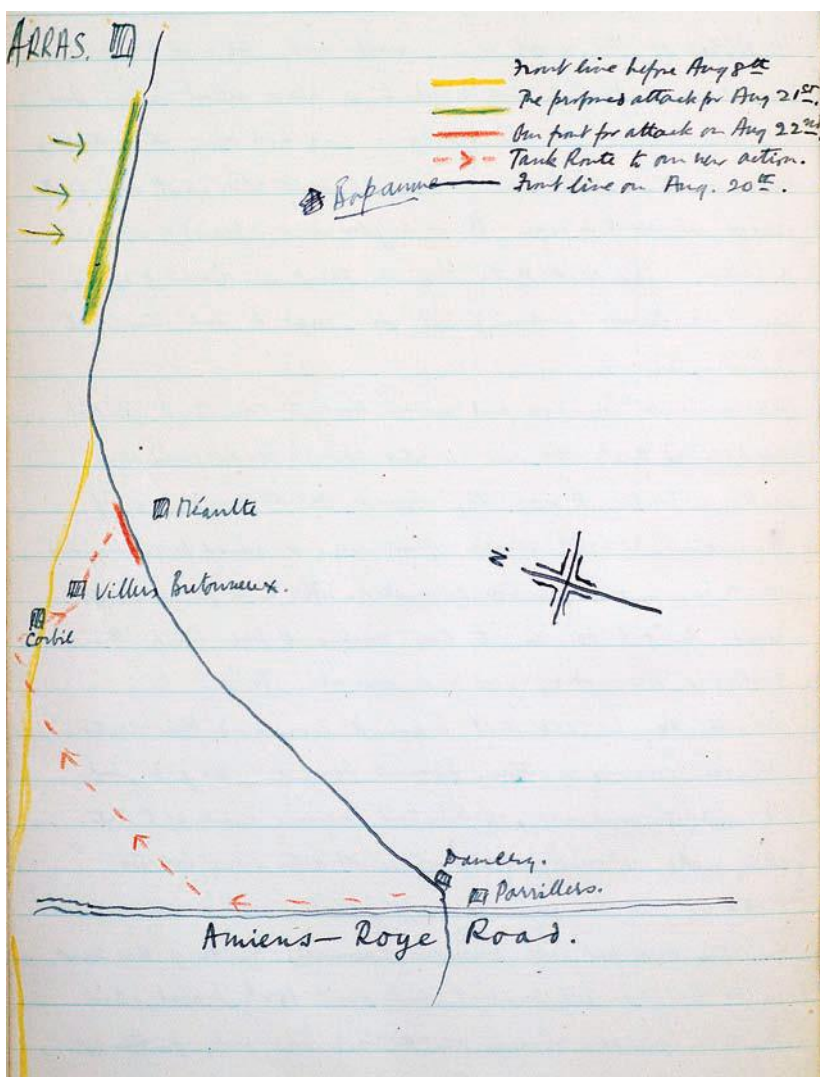 ARRAS.
Front line before Aug 8th
The proposed attack for Aug 21st.
Our front for attack on Aug 22nd.
Tank Route to our new action.
Front line on Aug. 20th.
Bapaume
Méaulte
N.
Villers Bretonneux.
Corbie
Damery.
Parvillers.
Amiens-Roye Road.